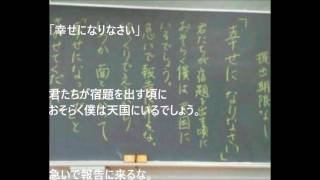 「幸せになりなさい」
君たちが宿題を出す頃に
おそらく僕は天国にいるでしょう。
急いで報告に来るな。
提出期限なし
「幸せに なりなさい」
君たちが宿題を出す頃に
おそらく僕は 天国に
いるでしょう。
急いで報告に